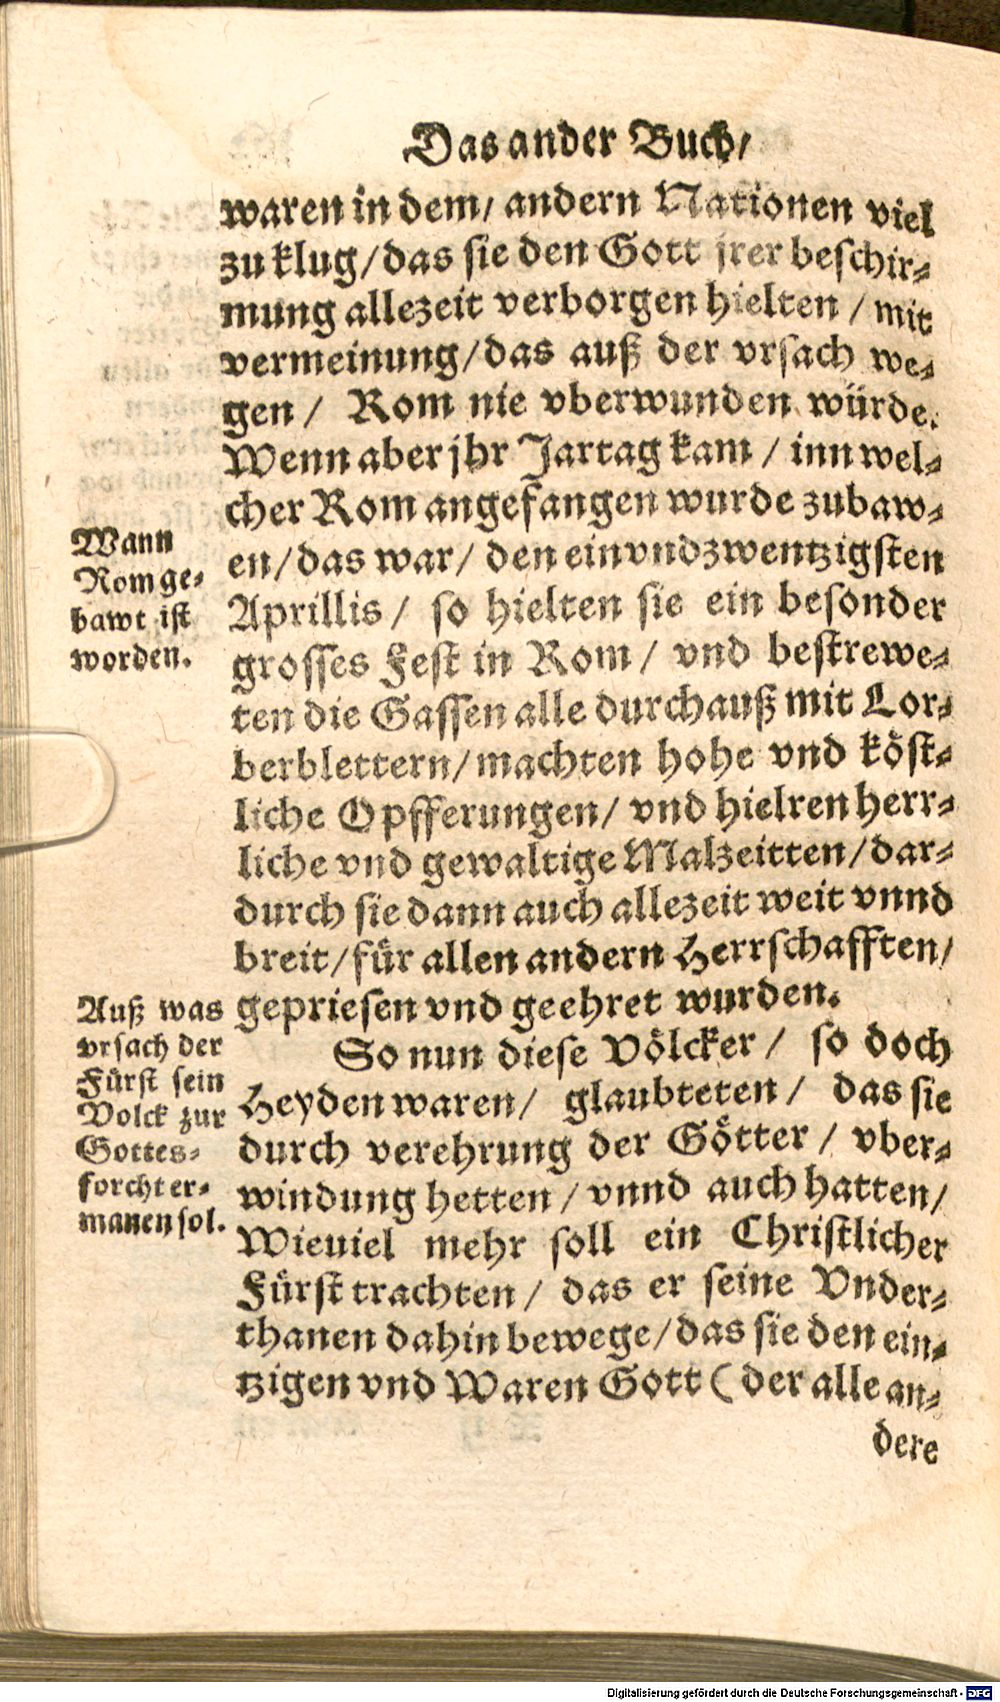 Das ander Buch/
waren in dem/ andern Nationen viel
zu klug/ das sie den Gott jrer beschir⸗
mung allezeit verborgen hielten / mit
vermeinung/ das auß der vrsach we⸗
gen / Rom nie vberwunden würde.
Wenn aber jhr Jartag kam / inn wel⸗
cher Rom angefangen wurde zubaw⸗
en/ das war/ den einvndzwentzigsten
Aprillis / so hielten sie ein besonder
grosses Fest in Rom / vnd bestrewe⸗
ten die Gassen alle durchauß mit Lor⸗
berblettern/ machten hohe vnd köst⸗
liche Opfferungen/ vnd hielten herr⸗
liche vnd gewaltige Malzeitten/ dar⸗
durch sie dann auch allezeit weit vnnd
breit/ für allen andern Herrschafften/
gepriesen vnd geehret wurden.
So nun diese Völcker / so doch
Heyden waren/ glaubteten / das sie
durch verehrung der Götter / vber⸗
windung hetten / vnnd auch hatten/
Wieuiel mehr soll ein Christlicher
Fürst trachten / das er seine Vnder⸗
thanen dahin bewege/ das sie den ein⸗
tzigen vnd Waren Gott ( der alle an⸗
dere
Wann
Rom ge⸗
bawt ist
worden.
Auß was
vrsach der
Fürst sein
Volck zur
Gottes⸗
forcht er⸗
manen sol.
Digitalisierung gefördert durch die Deutsche Forschungsgemeinschaft - DFG